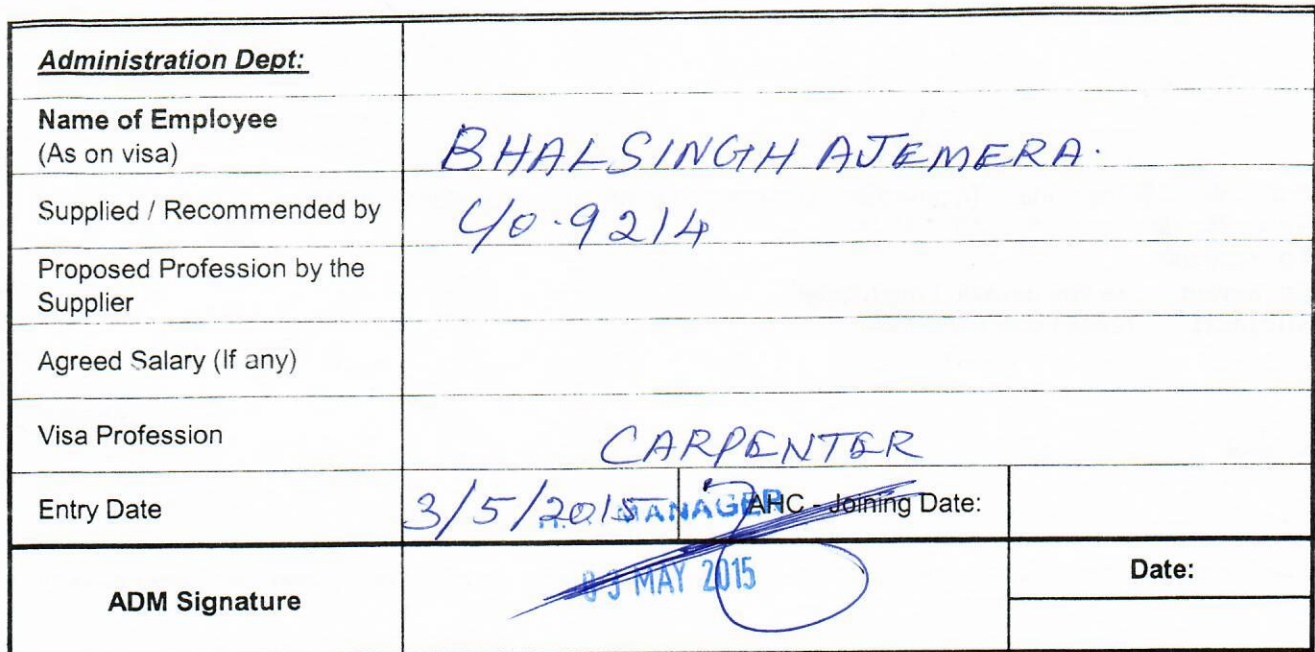 Administration Dept:
Name of Employee
(As on visa)
BHALSINGH AJEMERA.
Supplied / Recommended by
C/o. 9214
Proposed Profession by the
Supplier
Agreed Salary (If any)
Visa Profession
CARPENTER
Entry Date
3/5/2015
MANAGER
AHC - Joining Date:
ADM Signature
03 MAY 2015
Date: